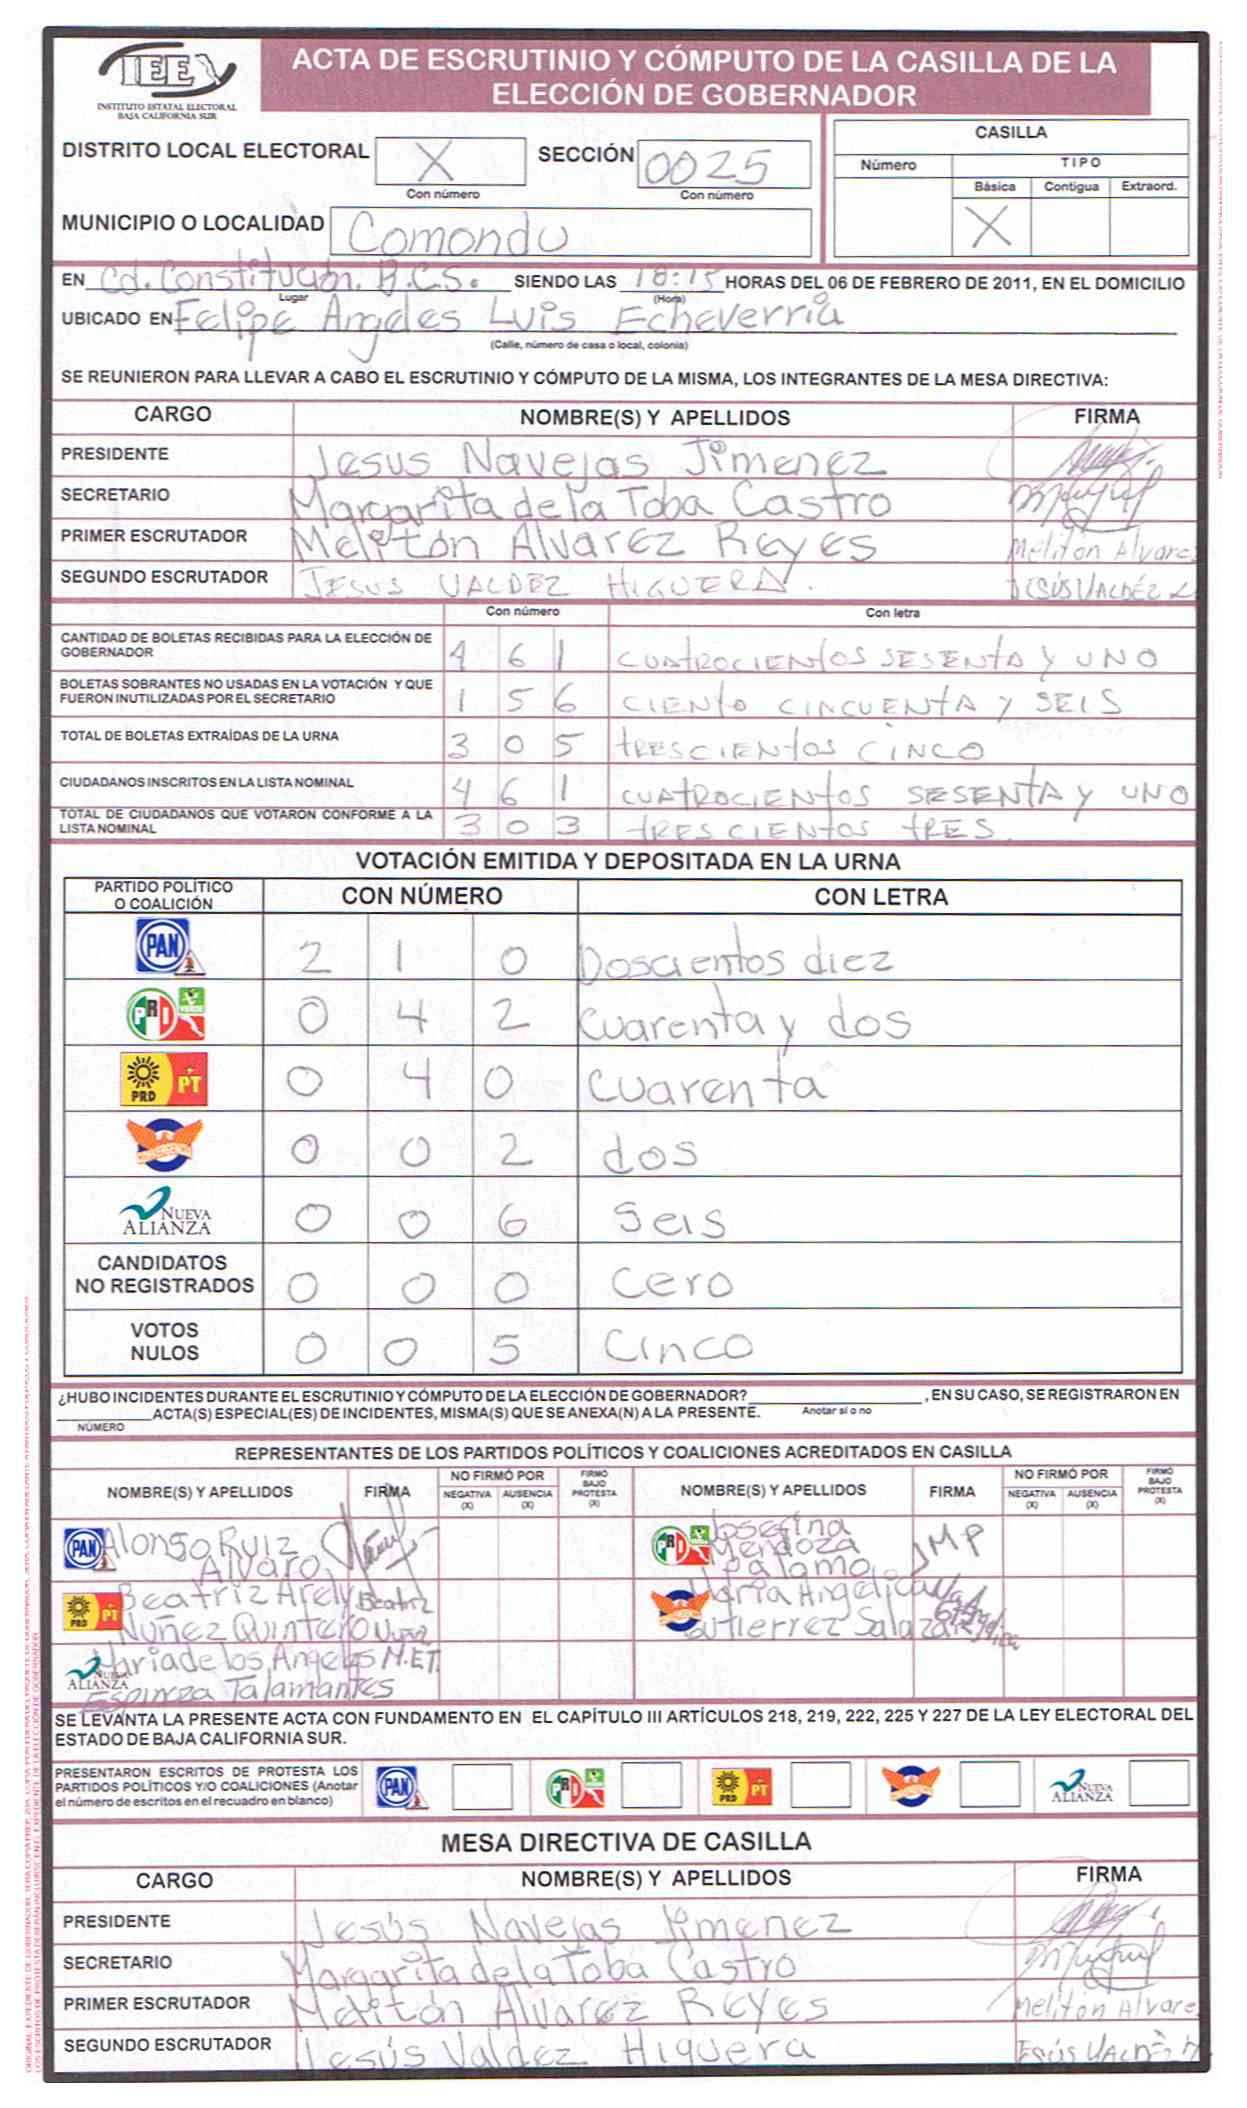 IEE
INSTITUTO ESTATAL ELECTORAL
BAJA CALIFORNIA SUR
ACTA DE ESCRUTINIO Y CÓMPUTO DE LA CASILLA DE LA
ELECCIÓN DE GOBERNADOR
DISTRITO LOCAL ELECTORAL X SECCIÓN 0025
Con número Con número
MUNICIPIO O LOCALIDAD Comondu
CASILLA
Número TIPO
Básica Contigua Extraord.
X
EN Cd. Constitución. B.C.S. SIENDO LAS 18:15 HORAS DEL 06 DE FEBRERO DE 2011, EN EL DOMICILIO
Lugar (Hora)
UBICADO EN Felipe Angeles Luis Echeverria
(Calle, número de casa o local, colonia)
SE REUNIERON PARA LLEVAR A CABO EL ESCRUTINIO Y CÓMPUTO DE LA MISMA, LOS INTEGRANTES DE LA MESA DIRECTIVA:
CARGO NOMBRE(S) Y APELLIDOS FIRMA
PRESIDENTE Jesus Navejas Jimenez
SECRETARIO Margarita de la Toba Castro
PRIMER ESCRUTADOR Melitón Alvarez Reyes Meliton Alvarez
SEGUNDO ESCRUTADOR JESUS VALDEZ HIGUERA. JESÚS VALDÉZ
Con número Con letra
CANTIDAD DE BOLETAS RECIBIDAS PARA LA ELECCIÓN DE
GOBERNADOR 4 6 1 CUATROCIENTOS SESENTA Y UNO
BOLETAS SOBRANTES NO USADAS EN LA VOTACIÓN Y QUE
FUERON INUTILIZADAS POR EL SECRETARIO 1 5 6 CIENTO CINCUENTA Y SEIS
TOTAL DE BOLETAS EXTRAÍDAS DE LA URNA 3 0 5 TRESCIENTOS CINCO
CIUDADANOS INSCRITOS EN LA LISTA NOMINAL 4 6 1 CUATROCIENTOS SESENTA Y UNO
TOTAL DE CIUDADANOS QUE VOTARON CONFORME A LA
LISTA NOMINAL 3 0 3 TRESCIENTOS TRES.
VOTACIÓN EMITIDA Y DEPOSITADA EN LA URNA
PARTIDO POLÍTICO
O COALICIÓN CON NÚMERO CON LETRA
PAN 2 1 0 Doscientos diez
PRI VERDE 0 4 2 Cuarenta y dos
PRD PT 0 4 0 Cuarenta
CONVERGENCIA 0 0 2 dos
NUEVA
ALIANZA 0 0 6 Seis
CANDIDATOS
NO REGISTRADOS 0 0 0 Cero
VOTOS
NULOS 0 0 5 Cinco
¿HUBO INCIDENTES DURANTE EL ESCRUTINIO Y CÓMPUTO DE LA ELECCIÓN DE GOBERNADOR? , EN SU CASO, SE REGISTRARON EN
ACTA(S) ESPECIAL(ES) DE INCIDENTES, MISMA(S) QUE SE ANEXA(N) A LA PRESENTE. Anotar sí o no
NÚMERO
REPRESENTANTES DE LOS PARTIDOS POLÍTICOS Y COALICIONES ACREDITADOS EN CASILLA
NOMBRE(S) Y APELLIDOS FIRMA NO FIRMÓ POR NEGATIVA (X) AUSENCIA (X) FIRMÓ BAJO PROTESTA (X) NOMBRE(S) Y APELLIDOS FIRMA NO FIRMÓ POR NEGATIVA (X) AUSENCIA (X) FIRMÓ BAJO PROTESTA (X)
PAN Alonso Ruiz
Alvaro
PRI Josefina
Mendoza
Palomo JMP
PRD PT Beatriz Arely Beatriz
Nuñez Quintero
Maria Angelica
Gutierrez Salazar
NUEVA ALIANZA Maria de los Angeles M.ET.
Espinoza Talamantes
SE LEVANTA LA PRESENTE ACTA CON FUNDAMENTO EN EL CAPÍTULO III ARTÍCULOS 218, 219, 222, 225 Y 227 DE LA LEY ELECTORAL DEL
ESTADO DE BAJA CALIFORNIA SUR.
PRESENTARON ESCRITOS DE PROTESTA LOS
PARTIDOS POLÍTICOS Y/O COALICIONES (Anotar
el número de escritos en el recuadro en blanco) PAN PRI PRD PT NUEVA ALIANZA
MESA DIRECTIVA DE CASILLA
CARGO NOMBRE(S) Y APELLIDOS FIRMA
PRESIDENTE Jesús Navejas Jimenez
SECRETARIO Margarita de la Toba Castro
PRIMER ESCRUTADOR Melitón Alvarez Reyes Meliton Alvare
SEGUNDO ESCRUTADOR Jesús Valdez Higuera JESÚS VALDÈZ